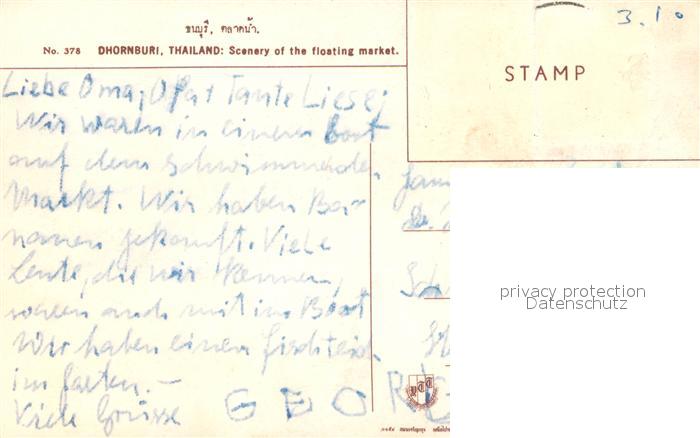 ธนบุรี, ตลาดน้ำ.
No. 378 DHORNBURI, THAILAND: Scenery of the floating market.
3.10
STAMP
Liebe Oma, Opa + Tante Liesej
Wir waren in einem Boot
auf dem schwimmenden
Markt. Wir haben Ba-
nanen gekauft. Viele
Leute, die wir kennen,
waren auch mit im Boot
Wir haben einen Fischteich
im Garten. –
Viele Grüsse GEORG
privacy protection
Datenschutz